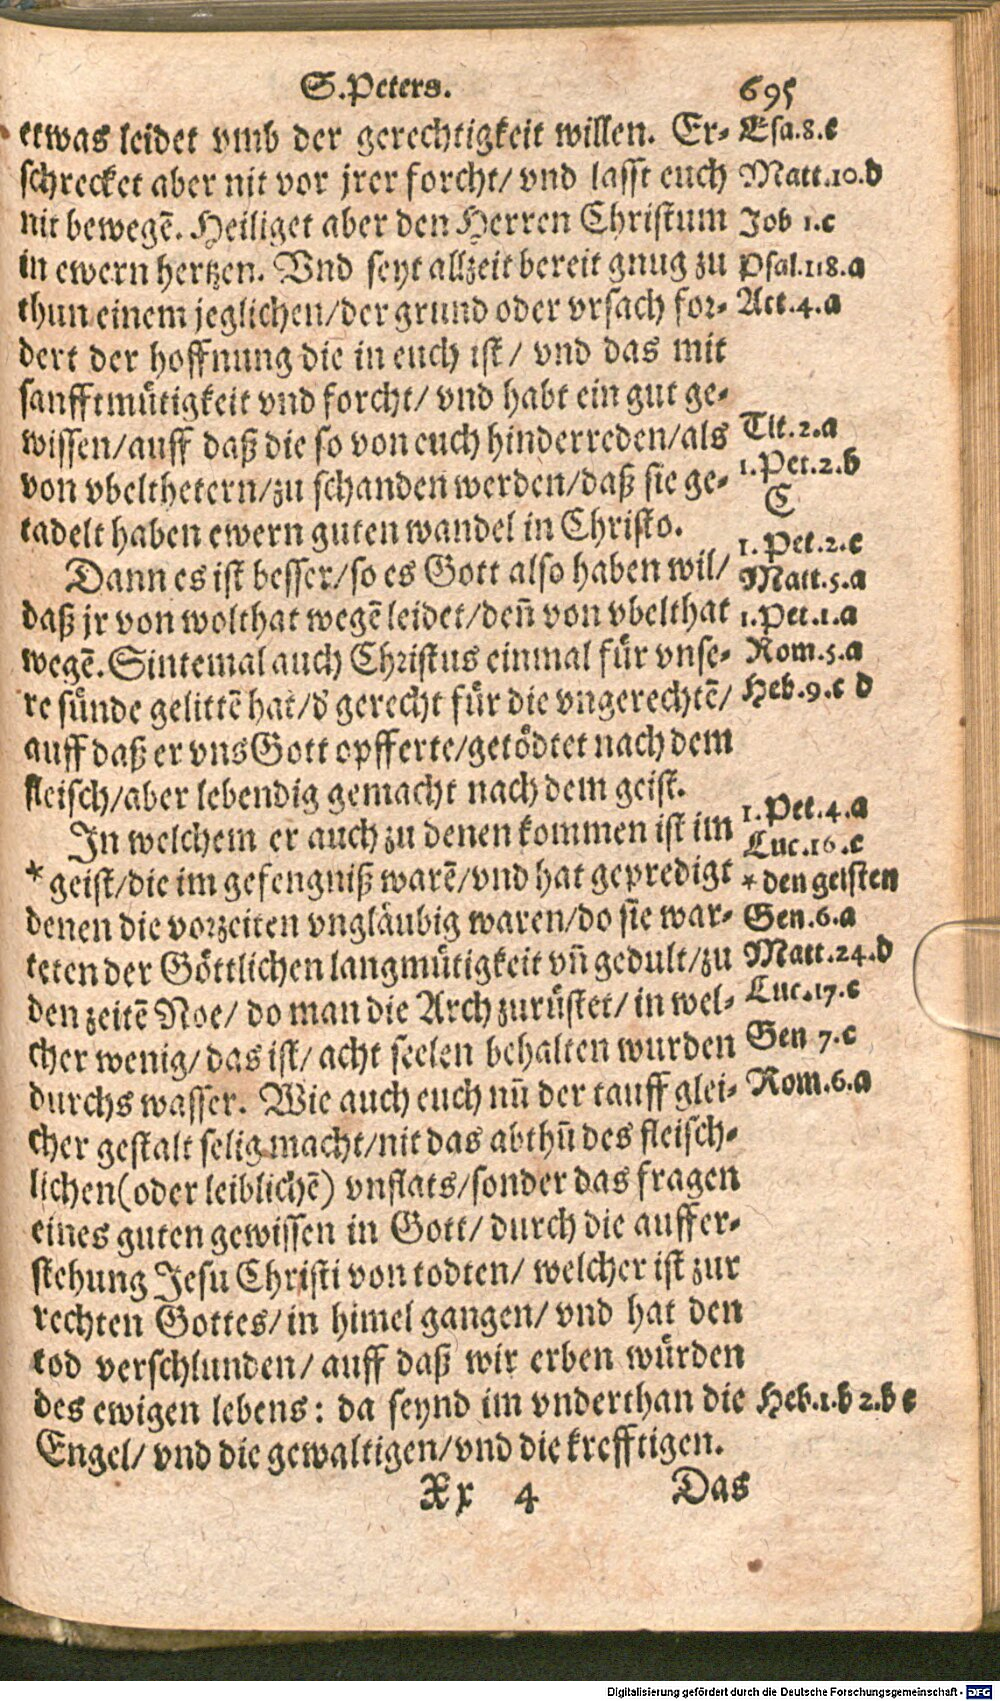 S. Peters. 695
etwas leidet vmb der gerechtigkeit willen. Er- Esa.8.c
schrecket aber nit vor jrer forcht/ vnd lasst euch Matt.10.d
nit bewegẽ. Heiliget aber den Herren Christum Job 1.c
in ewern hertzen. Vnd seyt allzeit bereit gnug zu Psal.118.a
thun einem jeglichen/der grund oder vrsach for- Act.4.a
dert der hoffnung die in euch ist/ vnd das mit
sanfftmütigkeit vnd forcht/ vnd habt ein gut ge-
wissen/auff daß die so von euch hinderreden/als Tit.2.a
von vbelthetern/zu schanden werden/daß sie ge- 1.Pet.2.b
C
tadelt haben ewern guten wandel in Christo.
Dann es ist besser/so es Gott also haben wil/ 1.Pet.2.c
Matt.5.a
daß jr von wolthat wegẽ leidet/deñ von vbelthat 1.Pet.1.a
wegẽ. Sintemal auch Christus einmal für vnse- Rom.5.a
re sünde gelittẽ hat/d̓ gerecht für die vngerechtẽ/ Heb.9.c d
auff daß er vns Gott opfferte/getödtet nach dem
fleisch/aber lebendig gemacht nach dem geist.
In welchem er auch zu denen kommen ist im 1.Pet.4.a
Luc.16.c
* geist/die im gefengniß warẽ/vnd hat gepredigt * den geisten
denen die vorzeiten vngläubig waren/do sie war- Gen.6.a
teten der Göttlichen langmütigkeit vñ gedult/zu Matt.24.d
den zeitẽ Noe/ do man die Arch zurüstet/ in wel- Luc.17.c
cher wenig/ das ist/ acht seelen behalten wurden Gen 7.c
durchs wasser. Wie auch euch nũ der tauff glei- Rom.6.a
cher gestalt selig macht/nit das abthũ des fleisch-
lichen(oder leiblichẽ) vnflats/sonder das fragen
eines guten gewissen in Gott/ durch die auffer-
stehung Jesu Christi von todten/ welcher ist zur
rechten Gottes/in himel gangen/ vnd hat den
tod verschlunden/ auff daß wir erben würden
des ewigen lebens: da seynd im vnderthan die Heb.1.b 2.b c
Engel/ vnd die gewaltigen/vnd die krefftigen.
Xx 4 Das
Digitalisierung gefördert durch die Deutsche Forschungsgemeinschaft - DFG